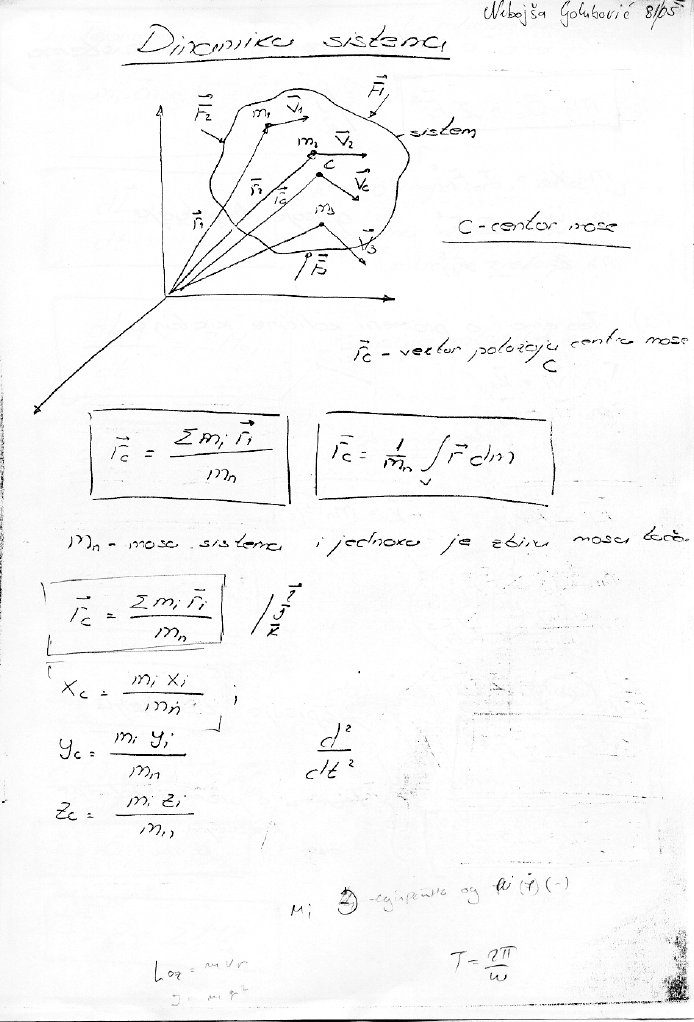 Nebojša Golubović 81/05
Dinamika sistema
F⃗2
m1 V⃗1
F⃗1
sistem
m2 V⃗2
C
V⃗c
r⃗1 r⃗2 r⃗c
m3
V⃗3
F⃗3
C-centar mase
r⃗c - vektor položaja centra mase
C
r⃗c = Σ mi r⃗i / mn
r⃗c = 1/mn ∫V r⃗ dm
mn - masa sistema i jednaka je zbiru masa tača
r⃗c = Σ mi r⃗i / mn
xc = mi xi / mn ;
yc = mi yi / mn
d² / dt²
zc = mi zi / mn
Mi
Loz = mvr
T = 2π / ω